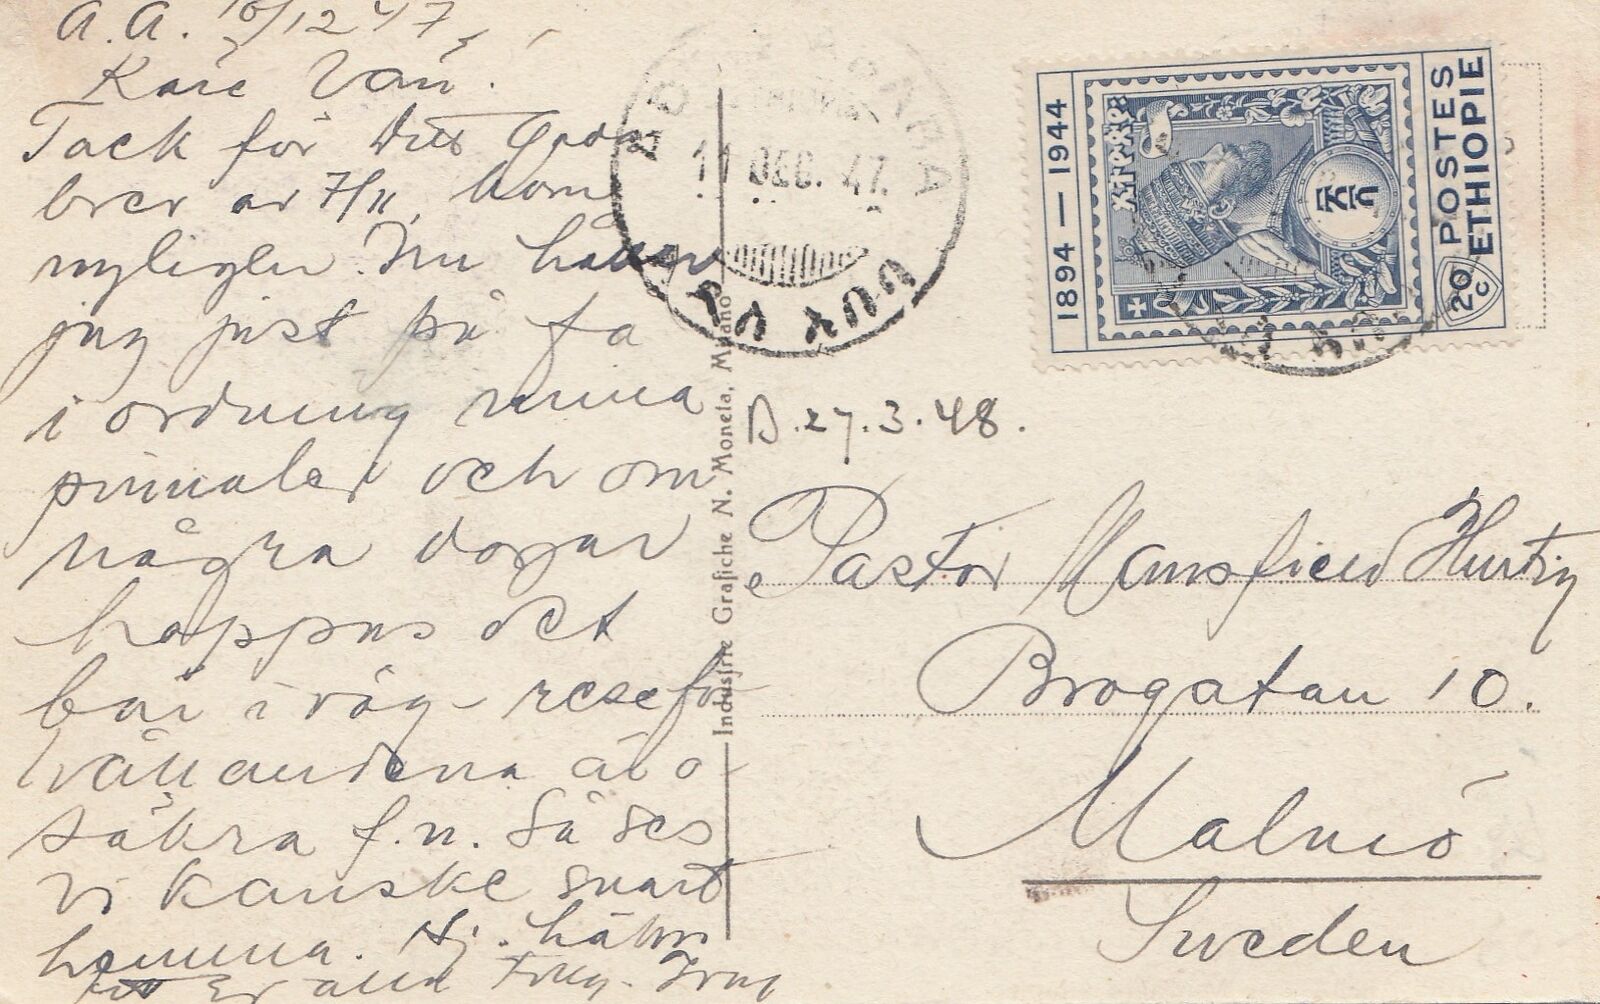 A.A. 10/12 47
Käre Vän.
Tack för Ditt
brev av 7/11, kom
nyligen. Nu håller
jag just på få
i ordning mina
och om
några dagar
hoppas det
bär iväg - resef
vållandena är o-
säkra f.n. Så ses
vi kanske snart
hemma. Hj. häln
Er alla
Industrie Grafiche N. Moneta, Milano
11 DEC. 47
1894 — 1944
POSTES
ETHIOPIE
20 c
B. 27.3.48.
Pastor Mansfield Hurtig
Brogatan 10.
Malmö
Sweden